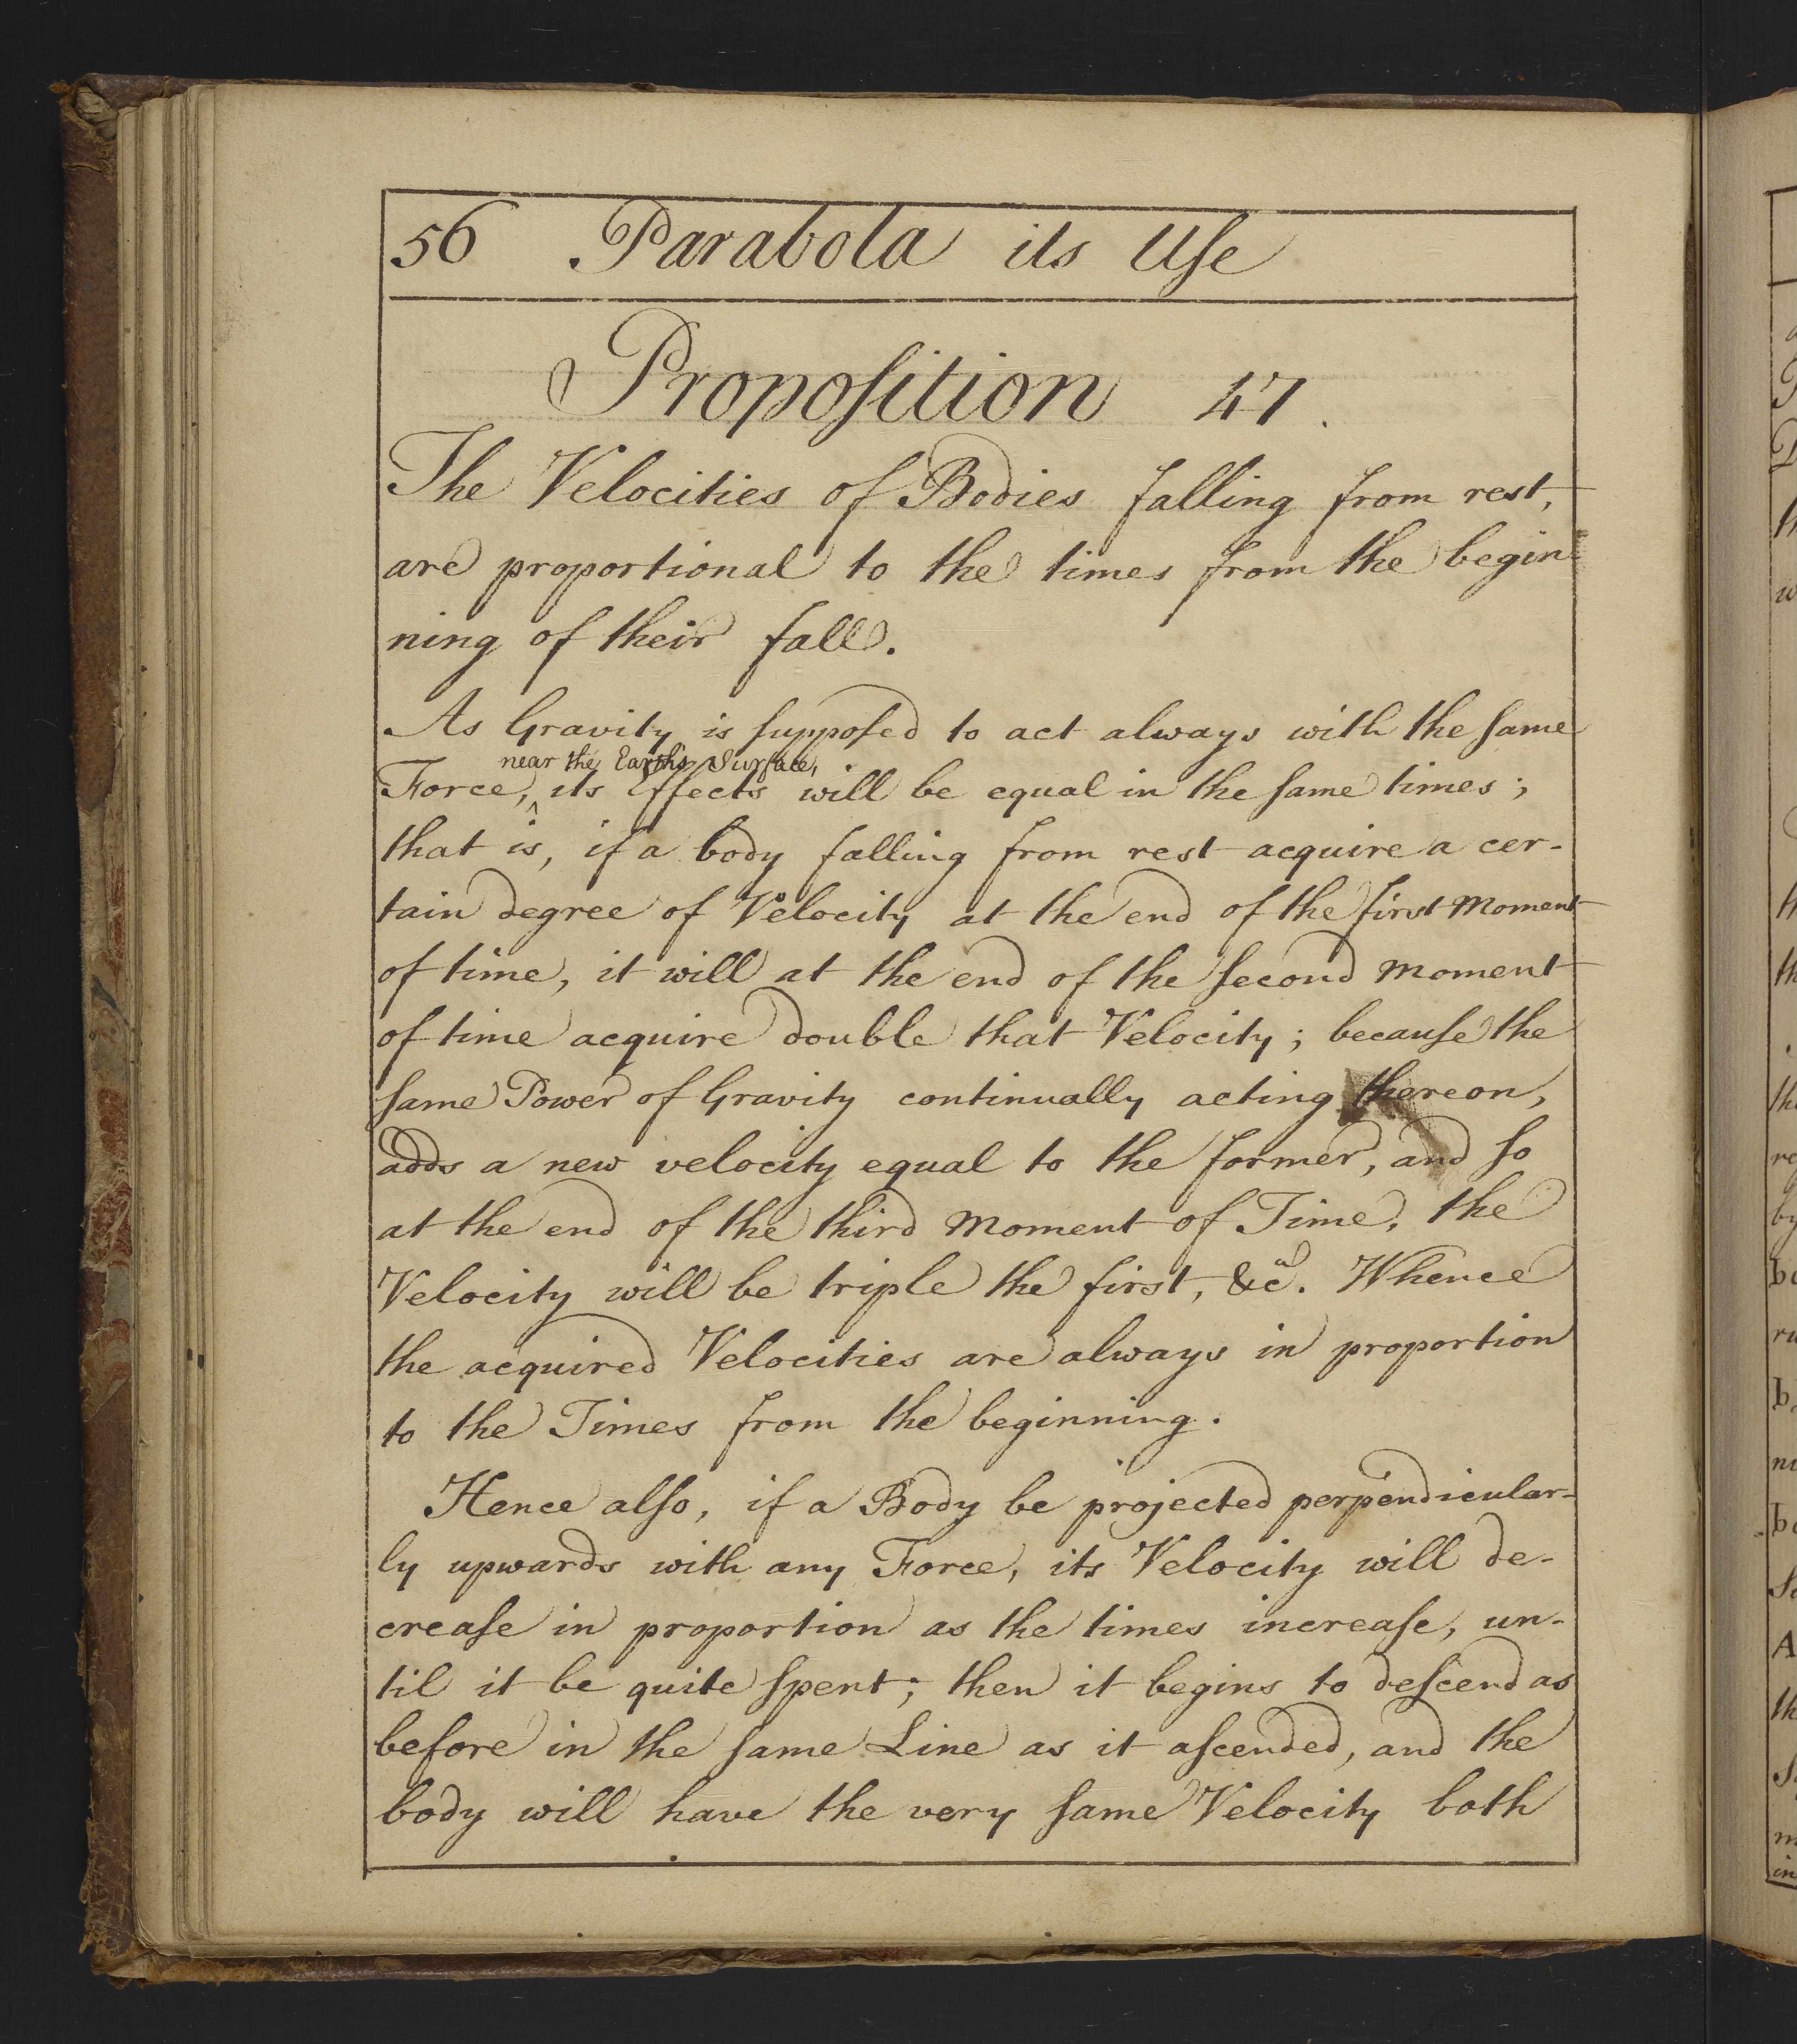 56 Parabola its Uſe
Propoſition 47.
The Velocities of Bodies falling from rest,
are proportional to the times from the begin
ning of their fall.
As Gravity is ſuppoſed to act always with the ſame
near the Earth's Surface,
Force, ‸ its Effects will be equal in the ſame times;
that is, if a body falling from rest acquire a cer-
tain degree of Velocity at the end of the first Moment
of time, it will at the end of the ſecond Moment
of time acquire double that Velocity; becauſe the
ſame Power of Gravity continually acting thereon,
adds a new velocity equal to the former, and ſo
at the end of the third Moment of Time, the
Velocity will be triple the first, &c.ª Whence
the acquired Velocities are always in proportion
to the Times from the beginning.
Hence alſo, if a Body be projected perpendicular-
ly upwards with any Force, its Velocity will de-
creaſe in proportion as the times increaſe, un-
til it be quite ſpent; then it begins to deſcend as
before in the ſame Line as it aſcended, and the
body will have the very ſame Velocity both